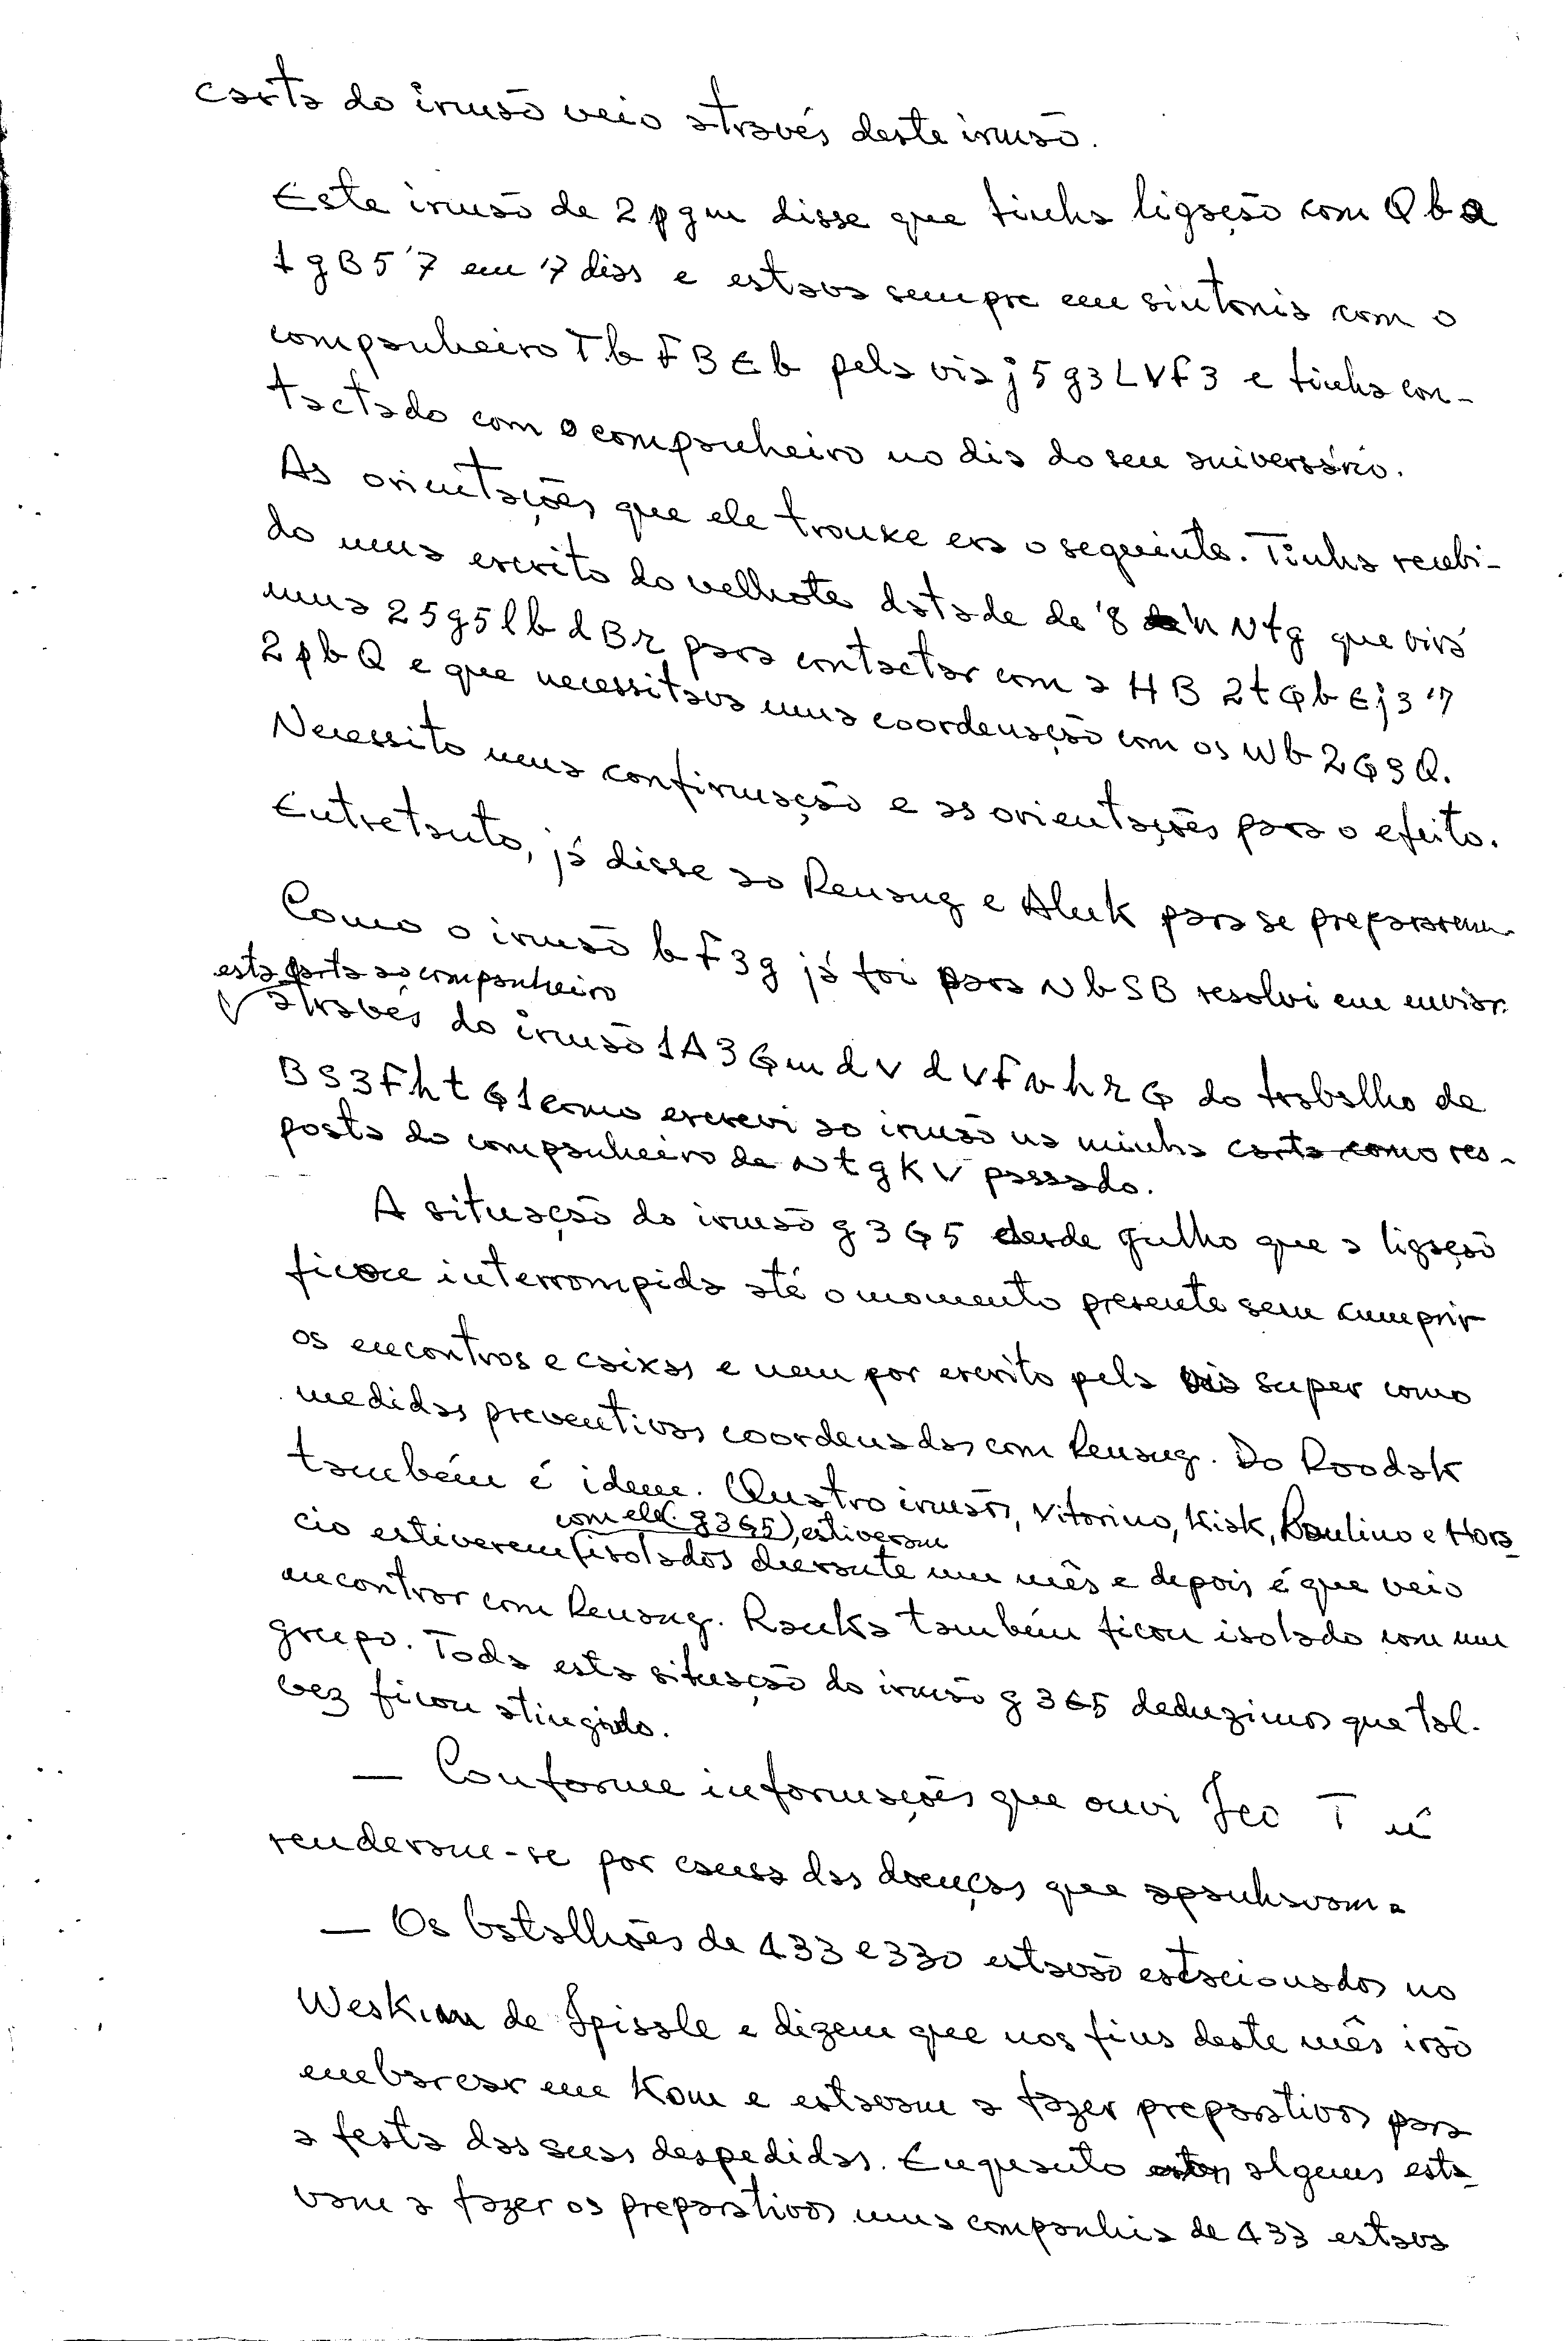 carta do irmão veio através deste irmão.
Este irmão de 2pgm disse que tinha ligação com Qba
tgB57 em 17 dias e estava sempre em sintonia com o
companheiro TbFBEb pela via j5g3LVf3 e tinha con-
tactado com o companheiro no dia do seu aniversário.
As orientações que ele trouxe era o seguinte. Tinha recebi-
do uma escrito do velhote datada de '8 h Ntg que virá
uma 25g5lbdBr para contactar com a HB 2tQbEj3'7
2pbQ e que necessitava uma coordenação com os Wb2G3Q.
Necessito uma confirmação e as orientações para o efeito.
Entretanto, já disse ao Renang e Aluk para se prepararem.
Como o irmão bF3g já foi para NbSB resolvi em enviar
esta carta ao companheiro
através do irmão 1A3GmdVdVfNhrG do trabalho de
BS3FhtG1 como escrevi ao irmão na minha carta como res-
posta do companheiro de NtgKV passado.
A situação do irmão g3G5 desde Julho que a ligação
ficou interrompida até o momento presente sem cumprir
os encontros e caixas e nem por escrito pela via super como
medidas preventivas coordenadas com Renang. Do Roodak
também é idem. Quatro irmãos, Vitorino, Kisk, Paulino e Horá-
com ele (g3G5), estiveram
cio estiverem isolados durante um mês e depois é que veio
encontrar com Renang. Rauka também ficou isolado com um
grupo. Toda esta situação do irmão g3G5 deduzimos que tal-
vez ficou atingido.
— Conforme informações que ouvi Jco T ú
renderam-se por causa das doenças que apanhavam.
— Os batalhões de 433 e 330 estavão estacionados no
Weskim de Ipissle e dizem que nos fins deste mês irão
embarcar em Kom e estavam a fazer preparativos para
a festa das suas despedidas. Enquanto alguns esta-
vam a fazer os preparativos uma companhia de 433 estava